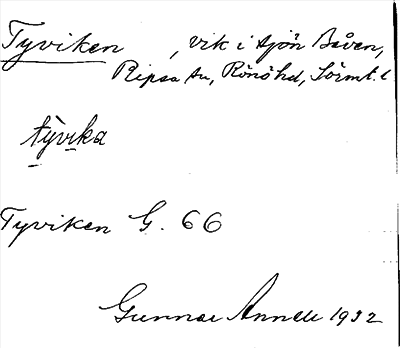 Tyviken , vik i sjön Båven,
Ripsa sn, Rönö hd, Sörml. l
tỳvika
Tyviken G. 66
Gunnar Annell 1932